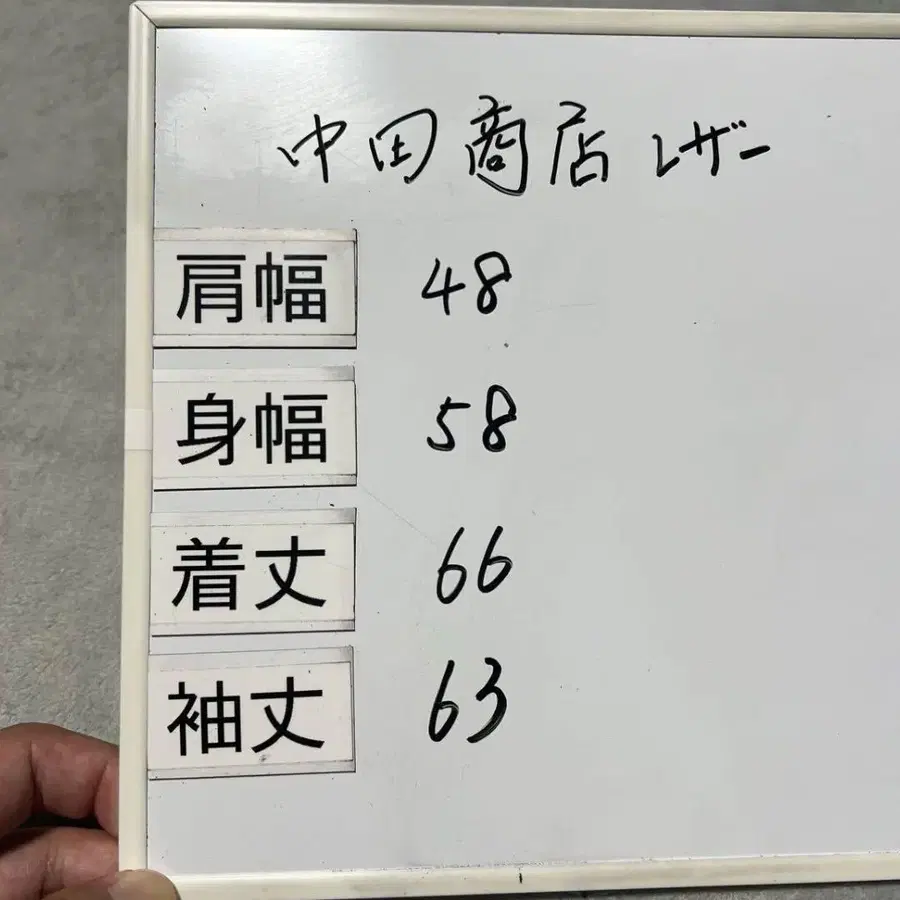 中田商店 レザー
肩幅 48
身幅 58
着丈 66
袖丈 63